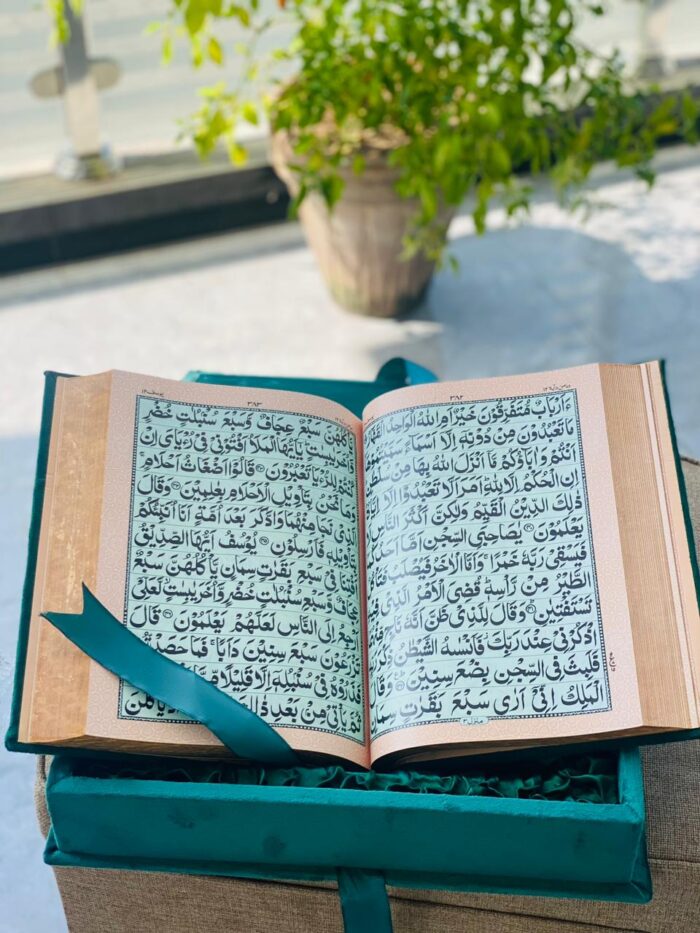 ٣٨٢
ءَاَرْبَابٌ مُّتَفَرِّقُوْنَ خَيْرٌ اَمِ اللّٰهُ الْوَاحِدُ الْقَهَّارُ
مَا تَعْبُدُوْنَ مِنْ دُوْنِهٖٓ اِلَّآ اَسْمَآءً سَمَّيْتُمُوْهَآ
اَنْتُمْ وَاٰبَآؤُكُمْ مَّآ اَنْزَلَ اللّٰهُ بِهَا مِنْ سُلْطٰنٍ
اِنِ الْحُكْمُ اِلَّا لِلّٰهِ اَمَرَ اَلَّا تَعْبُدُوْٓا اِلَّآ اِيَّاهُ
ذٰلِكَ الدِّيْنُ الْقَيِّمُ وَلٰكِنَّ اَكْثَرَ النَّاسِ
يَعْلَمُوْنَ ۴۰ يٰصَاحِبَيِ السِّجْنِ اَمَّآ اَحَدُكُمَا
فَيَسْقِيْ رَبَّهٗ خَمْرًا ۚ وَاَمَّا الْاٰخَرُ فَيُصْلَبُ
الطَّيْرُ مِنْ رَّاْسِهٖ ؕ قُضِيَ الْاَمْرُ الَّذِيْ
تَسْتَفْتِيٰنِ ۴۱ وَقَالَ لِلَّذِيْ ظَنَّ اَنَّهٗ نَاجٍ
اذْكُرْنِيْ عِنْدَ رَبِّكَ فَاَنْسٰىهُ الشَّيْطٰنُ
فَلَبِثَ فِي السِّجْنِ بِضْعَ سِنِيْنَ ۴۲ وَقَالَ
الْمَلِكُ اِنِّيْٓ اَرٰى سَبْعَ بَقَرٰتٍ سِمَانٍ
٣٨٣
يَّاْكُلُهُنَّ سَبْعٌ عِجَافٌ وَّسَبْعَ سُنْۢبُلٰتٍ خُضْرٍ
وَّاُخَرَ يٰبِسٰتٍ ؕ يٰٓاَيُّهَا الْمَلَاُ اَفْتُوْنِيْ فِيْ رُءْيَايَ اِنْ
كُنْتُمْ لِلرُّءْيَا تَعْبُرُوْنَ ۴۳ قَالُوْٓا اَضْغَاثُ اَحْلَامٍ
وَمَا نَحْنُ بِتَاْوِيْلِ الْاَحْلَامِ بِعٰلِمِيْنَ ۴۴ وَقَالَ
الَّذِيْ نَجَا مِنْهُمَا وَادَّكَرَ بَعْدَ اُمَّةٍ اَنَا اُنَبِّئُكُمْ
بِتَاْوِيْلِهٖ فَاَرْسِلُوْنِ ۴۵ يُوْسُفُ اَيُّهَا الصِّدِّيْقُ
اَفْتِنَا فِيْ سَبْعِ بَقَرٰتٍ سِمَانٍ يَّاْكُلُهُنَّ سَبْعٌ
عِجَافٌ وَّسَبْعِ سُنْۢبُلٰتٍ خُضْرٍ وَّاُخَرَ يٰبِسٰتٍ لَّعَلِّيْٓ
اَرْجِعُ اِلَى النَّاسِ لَعَلَّهُمْ يَعْلَمُوْنَ ۴۶ قَالَ
تَزْرَعُوْنَ سَبْعَ سِنِيْنَ دَاَبًا ۚ فَمَا حَصَدْتُّمْ
فَذَرُوْهُ فِيْ سُنْۢبُلِهٖٓ اِلَّا قَلِيْلًا مِّمَّا
ثُمَّ يَاْتِيْ مِنْۢ بَعْدِ ذٰلِكَ